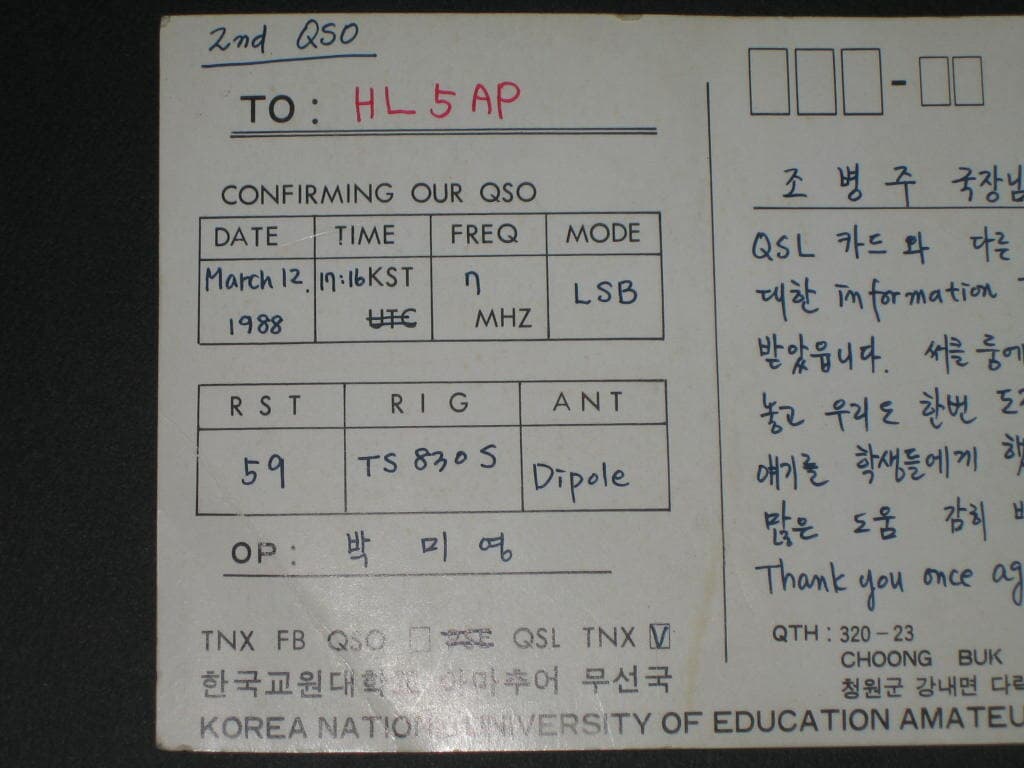 2nd QSO
TO: HL5AP
CONFIRMING OUR QSO
DATE TIME FREQ MODE
March 12. 1988 17:16 KST UTC 7 MHZ LSB
RST RIG ANT
59 TS 830S Dipole
OP: 박 미 영
TNX FB QSO QSL TNX V
한국교원대학교 아마추어 무선국
KOREA NATIONAL UNIVERSITY OF EDUCATION AMATEU
-
조 병 주 국장님
QSL 카드와 다른
대한 information
받았읍니다. 써클룸에
놓고 우리도 한번
얘기를 학생들에게
많은 도움 감히
Thank you once ag
QTH: 320-23
CHOONG BUK
청원군 강내면 다락